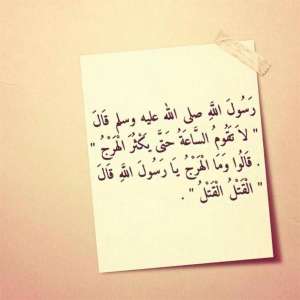 رَسُولَ اللَّهِ صلى الله عليه وسلم قَالَ
" لاَ تَقُومُ السَّاعَةُ حَتَّى يَكْثُرَ الْهَرْجُ "
. قَالُوا وَمَا الْهَرْجُ يَا رَسُولَ اللَّهِ قَالَ
" الْقَتْلُ الْقَتْلُ " .